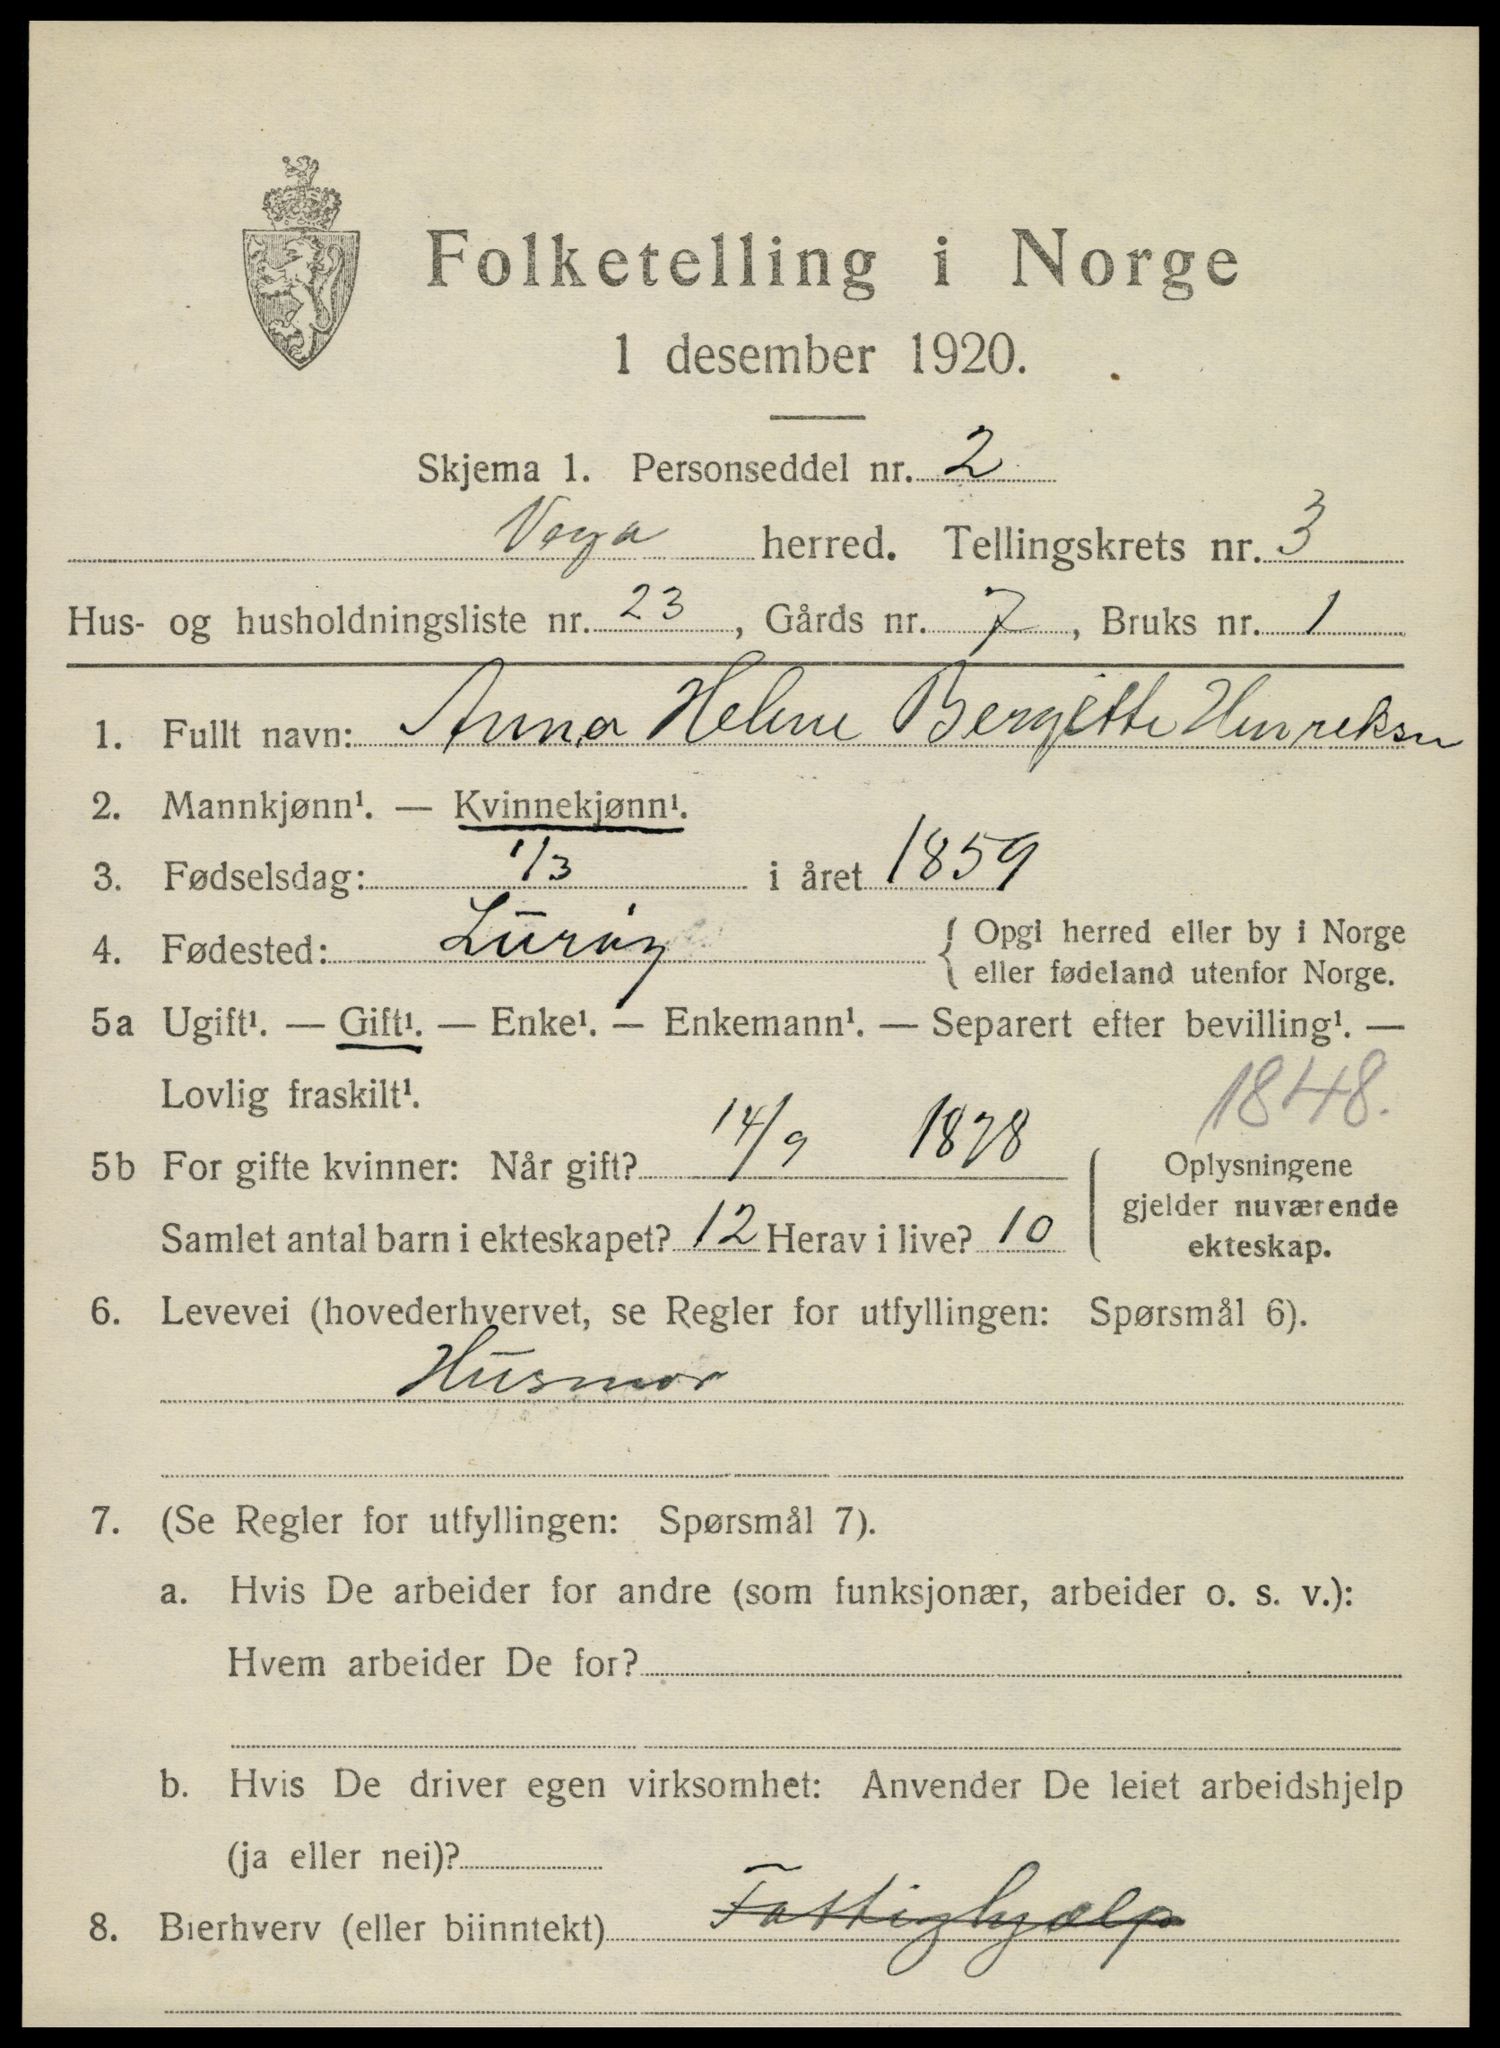 Folketelling i Norge
1 desember 1920.
Skjema 1. Personseddel nr. 2
Vega herred. Tellingskrets nr. 3
Hus- og husholdningsliste nr. 23, Gårds nr. 7, Bruks nr. 1
1. Fullt navn: Anna Helene Bergitte Henreksn
2. Mannkjønn¹. — Kvinnekjønn¹.
3. Fødselsdag: 1/3 i året 1859
4. Fødested: Lurøy { Opgi herred eller by i Norge
eller fødeland utenfor Norge.
5a Ugift¹. — Gift¹. — Enke¹. — Enkemann¹. — Separert efter bevilling¹. —
Lovlig fraskilt¹.
1848.
5b For gifte kvinner: Når gift? 14/9 1878
Samlet antal barn i ekteskapet? 12 Herav i live? 10
Oplysningene
gjelder nuværende
ekteskap.
6. Levevei (hovederhvervet, se Regler for utfyllingen: Spørsmål 6).
Husmor
7. (Se Regler for utfyllingen: Spørsmål 7).
a. Hvis De arbeider for andre (som funksjonær, arbeider o. s. v.):
Hvem arbeider De for?
b. Hvis De driver egen virksomhet: Anvender De leiet arbeidshjelp
(ja eller nei)?
8. Bierhverv (eller biinntekt) Fattighjælp